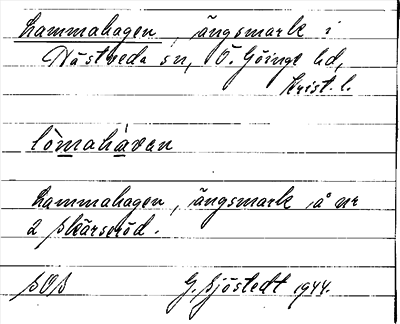 Lammahagen, ängsmark i
Hästveda sn, Ö. Göinge hd,
Krist. l.
lòmahàvan
Lammahagen, ängsmark å nr
2 Skärseröd.
SOS
G. Sjöstedt 1944.